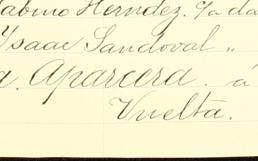 abino Herndez. Ya da
Ysaac Sandoval „
a. Aparcera. á
Vuelta.